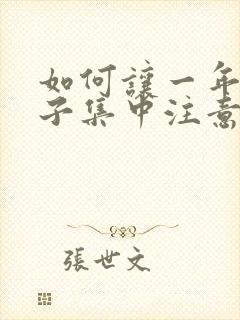 如何讓一年
子集中注意
張世文